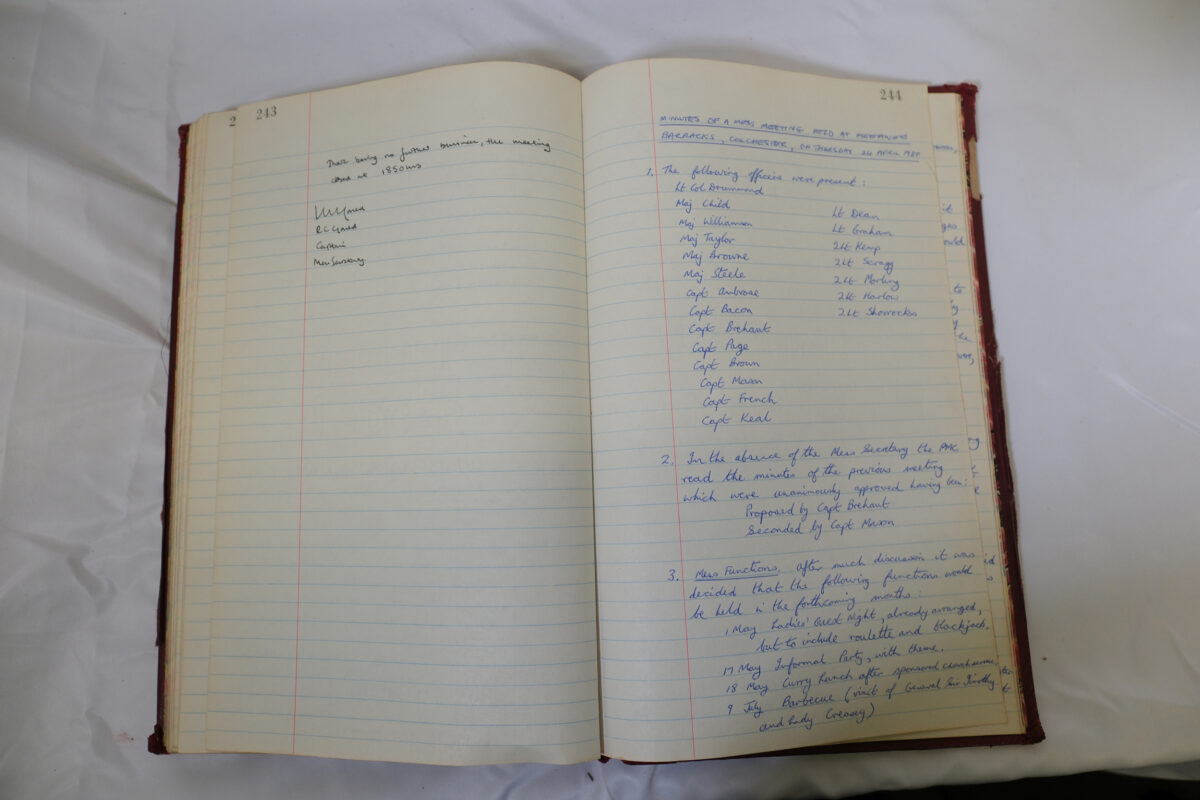 2
243
There being no further business, the meeting
closed at 1850 hrs
Captain
Mess Secretary
244
MINUTES OF A MESS MEETING HELD AT MEEANEE
BARRACKS, COLCHESTER, ON THURSDAY 24 APRIL 1980
1. The following officers were present:
Lt Col Drummond
Maj Child
Maj Williamson
Maj Taylor
Maj Browne
Maj Steele
Capt Ambrose
Capt Bacon
Capt Brehaut
Capt Page
Capt Brown
Capt Mason
Capt French
Capt Keal
Lt Dean
Lt Graham
2Lt Kemp
2Lt Scragg
2Lt Morley
2Lt Harlow
2Lt Shorrocks
2. In the absence of the Mess Secretary the PMC
read the minutes of the previous meeting
which were unanimously approved having been:
Proposed by Capt Brehaut
Seconded by Capt Mason
3. Mess Functions. After much discussion it was
decided that the following functions would
be held in the forthcoming months:
1 May Ladies' Guest Night, already arranged,
but to include roulette and blackjack.
17 May Informal Party, with theme.
18 May Curry Lunch after sponsored church service
9 July Barbecue (visit of General Sir Timothy
and Lady Creasey)